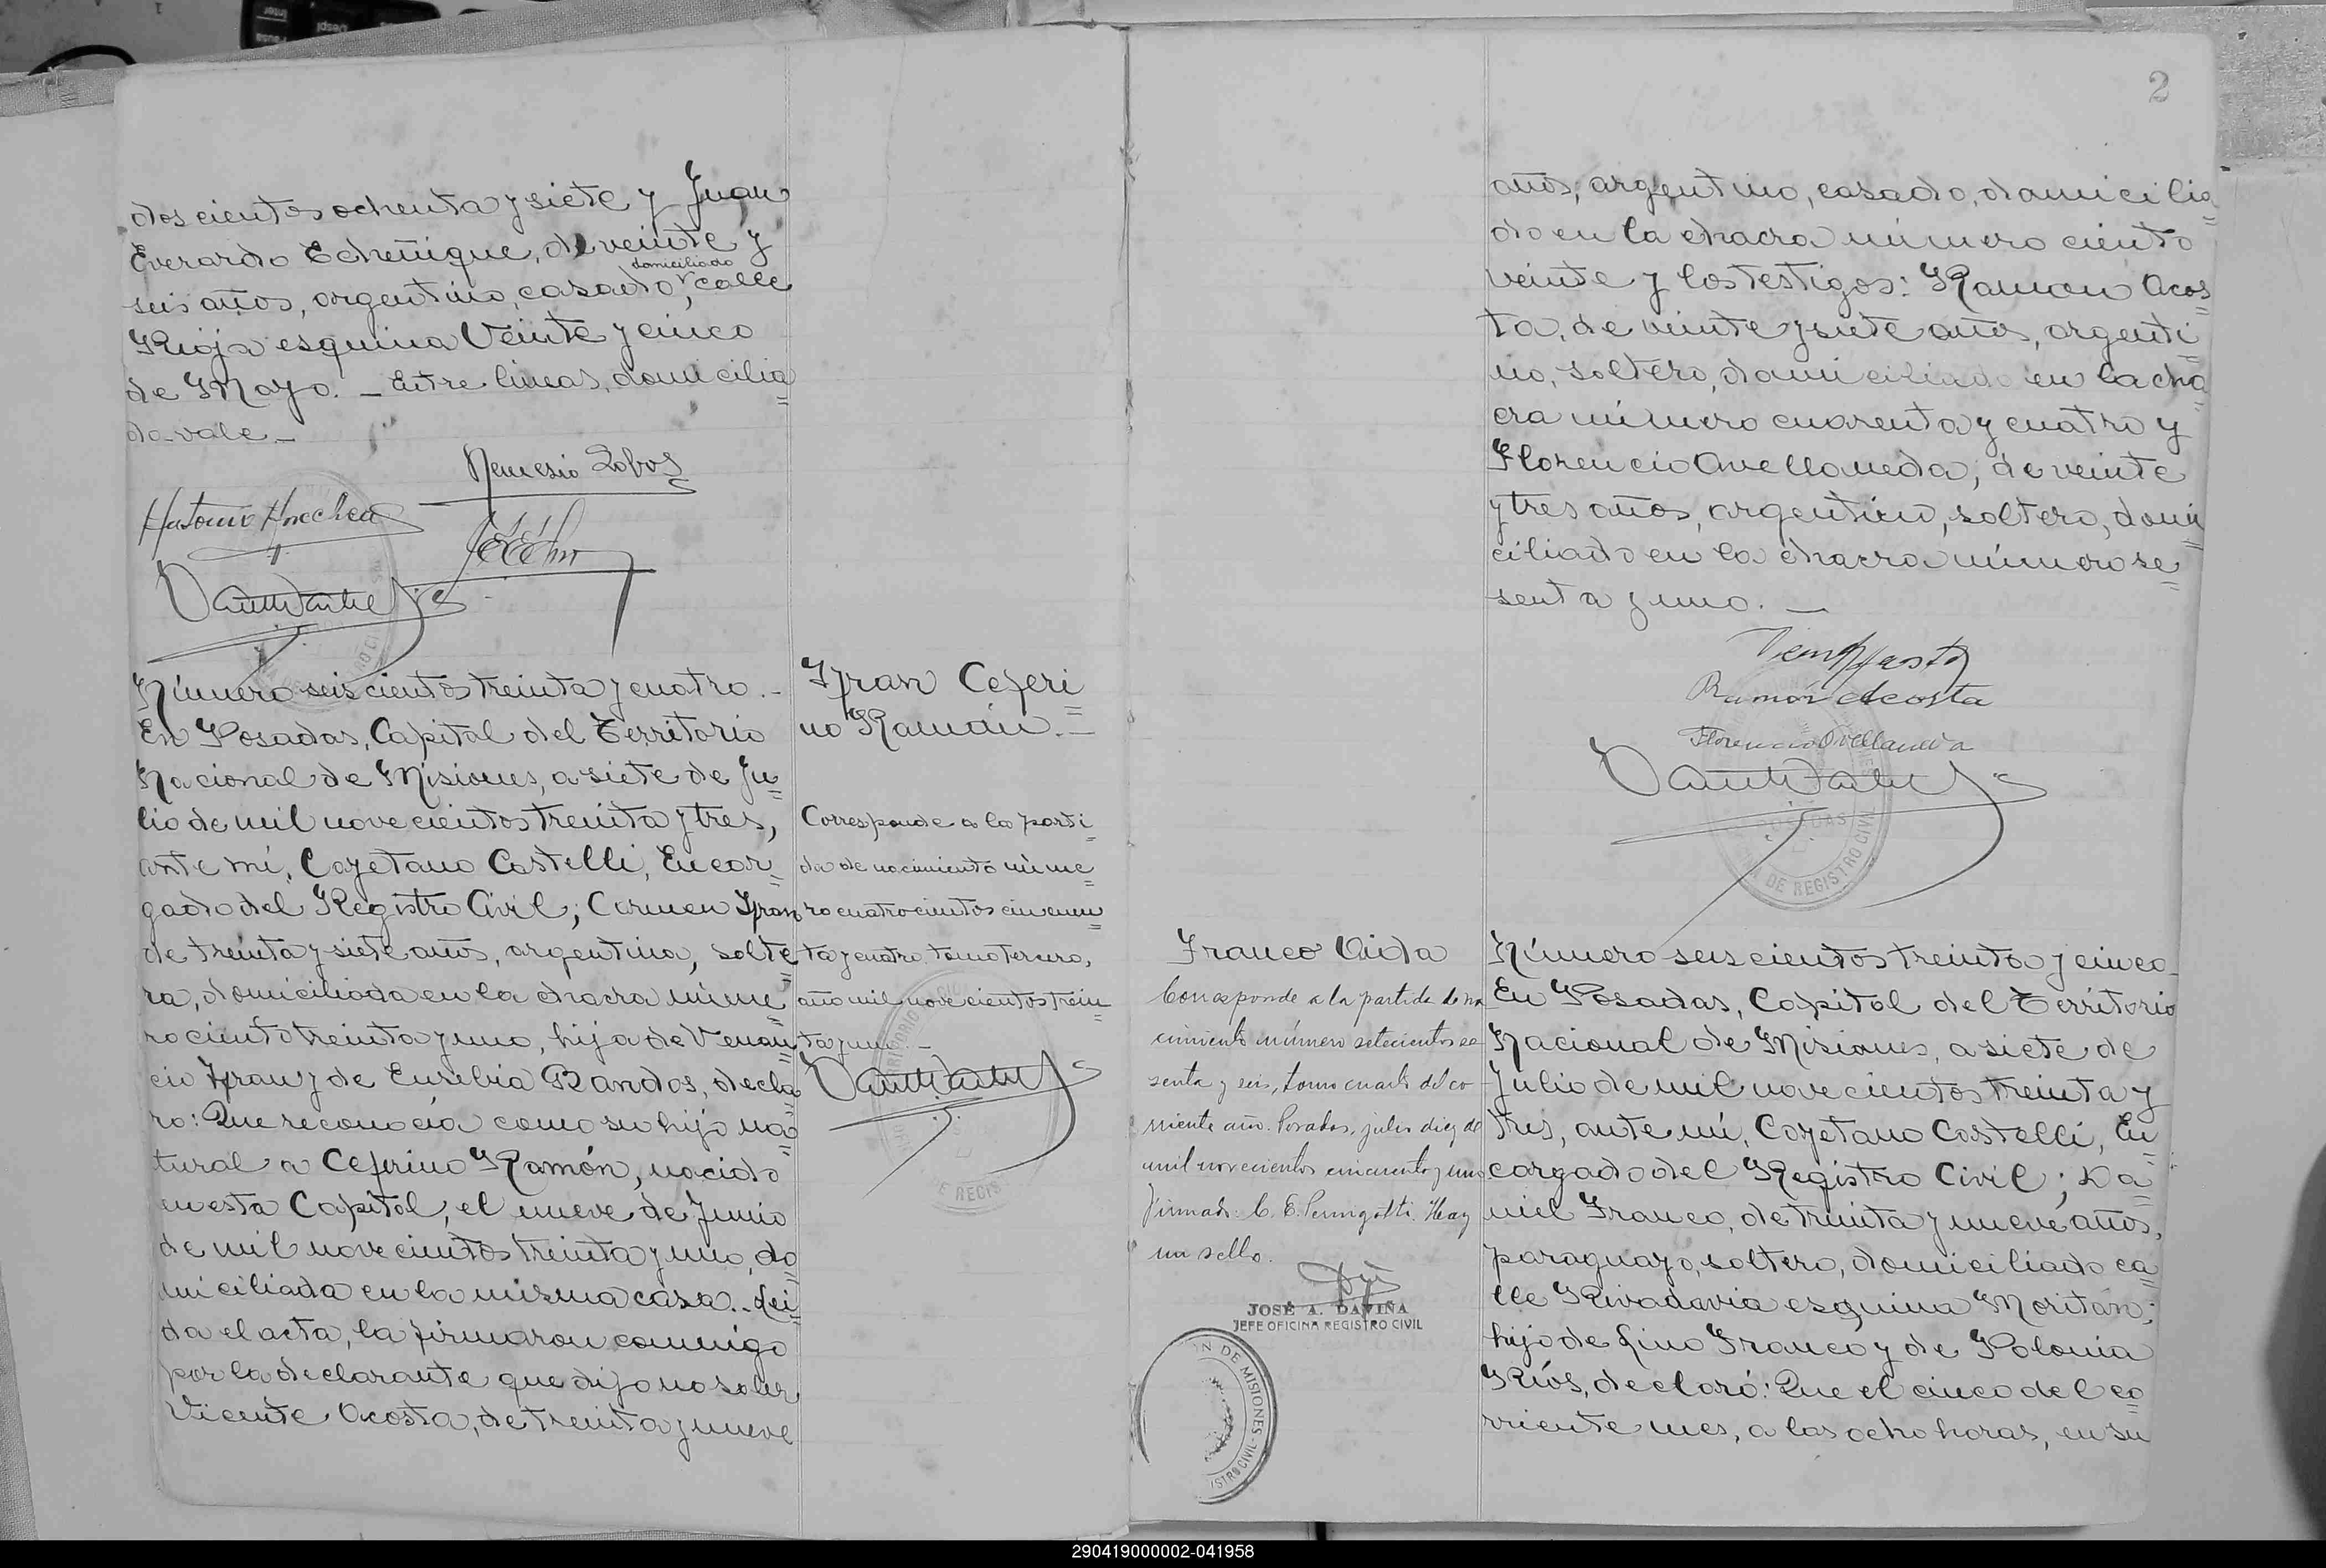 doscientos ochenta y siete y Juan
Everardo Echeñique, de veinte y
domiciliado
seis años, argentino, casado, calle
Rioja esquina Veinte y cinco
de Mayo. _ Entre lineas, domicilia=
do-vale._
Nemesio Lobos
Número seiscientos treinta y cuatro._
En Posadas, Capital del Territorio
Nacional de Misiones, a siete de Ju=
lio de mil novecientos treinta y tres,
ante mí, Cayetano Castelli, Encar=
gado del Registro Civil; Carmen Yfran
de treinta y siete años, argentina, solte=
ra, domiciliada en la chacra núme=
ro ciento treinta y uno, hija de Venan=
cio Yfran y de Eusebia Randos, decla=
ro: Que reconocía como su hijo na=
tural a Ceferino Ramón, nacido
en esta Capital, el nueve de Junio
de mil novecientos treinta y uno, do=
miciliada en la misma casa._ Leí=
da el acta, la firmaron conmigo
por la declarante que dijo no saber
Vicente Acosta, de treinta y nueve
Yfran Ceferi=
no Ramón._
Corresponde a la parti=
da de nacimiento núme=
ro cuatrocientos cincuen=
ta y cuatro, tomo tercero,
año mil novecientos trein=
ta y uno._
2
años, argentino, casado, domicilia=
do en la chacra número ciento
veinte y los testigos: Ramon Acos=
ta, de veinte y siete años, argenti=
no, soltero, domiciliado en la cha=
cra número cuarenta y cuatro y
Florencio Avellaneda, de veinte
y tres años, argentino, soltero, domi=
ciliado en la chacra número se=
senta y uno. _
Ramón Acosta
Florencio Avellaneda
POSADAS
DE REGISTRO CIVIL
Franco Aida
Corresponde a la partida de na
cimiento número setecientos se
senta y seis, tomo cuarto del co
rriente año. Posadas, julio diez de
mil novecientos cincuenta y uno
Firmado: C. E. Hay
un sello.
JOSE A. DAVIÑA
JEFE OFICINA REGISTRO CIVIL
DE MISIONES
Número seiscientos treinta y cinco_
En Posadas, Capital del Territorio
Nacional de Misiones, a siete de
Julio de mil novecientos treinta y
tres, ante mí, Cayetano Castelli, En=
cargado del Registro Civil; Da=
niel Franco, de treinta y nueve años,
paraguayo, soltero, domiciliado ca=
lle Rivadavia esquina Moritán;
hijo de Lino Franco y de Polonia
Ríos, declaró: Que el cinco del co=
rriente mes, a las ocho horas, en su
290419000002-041958